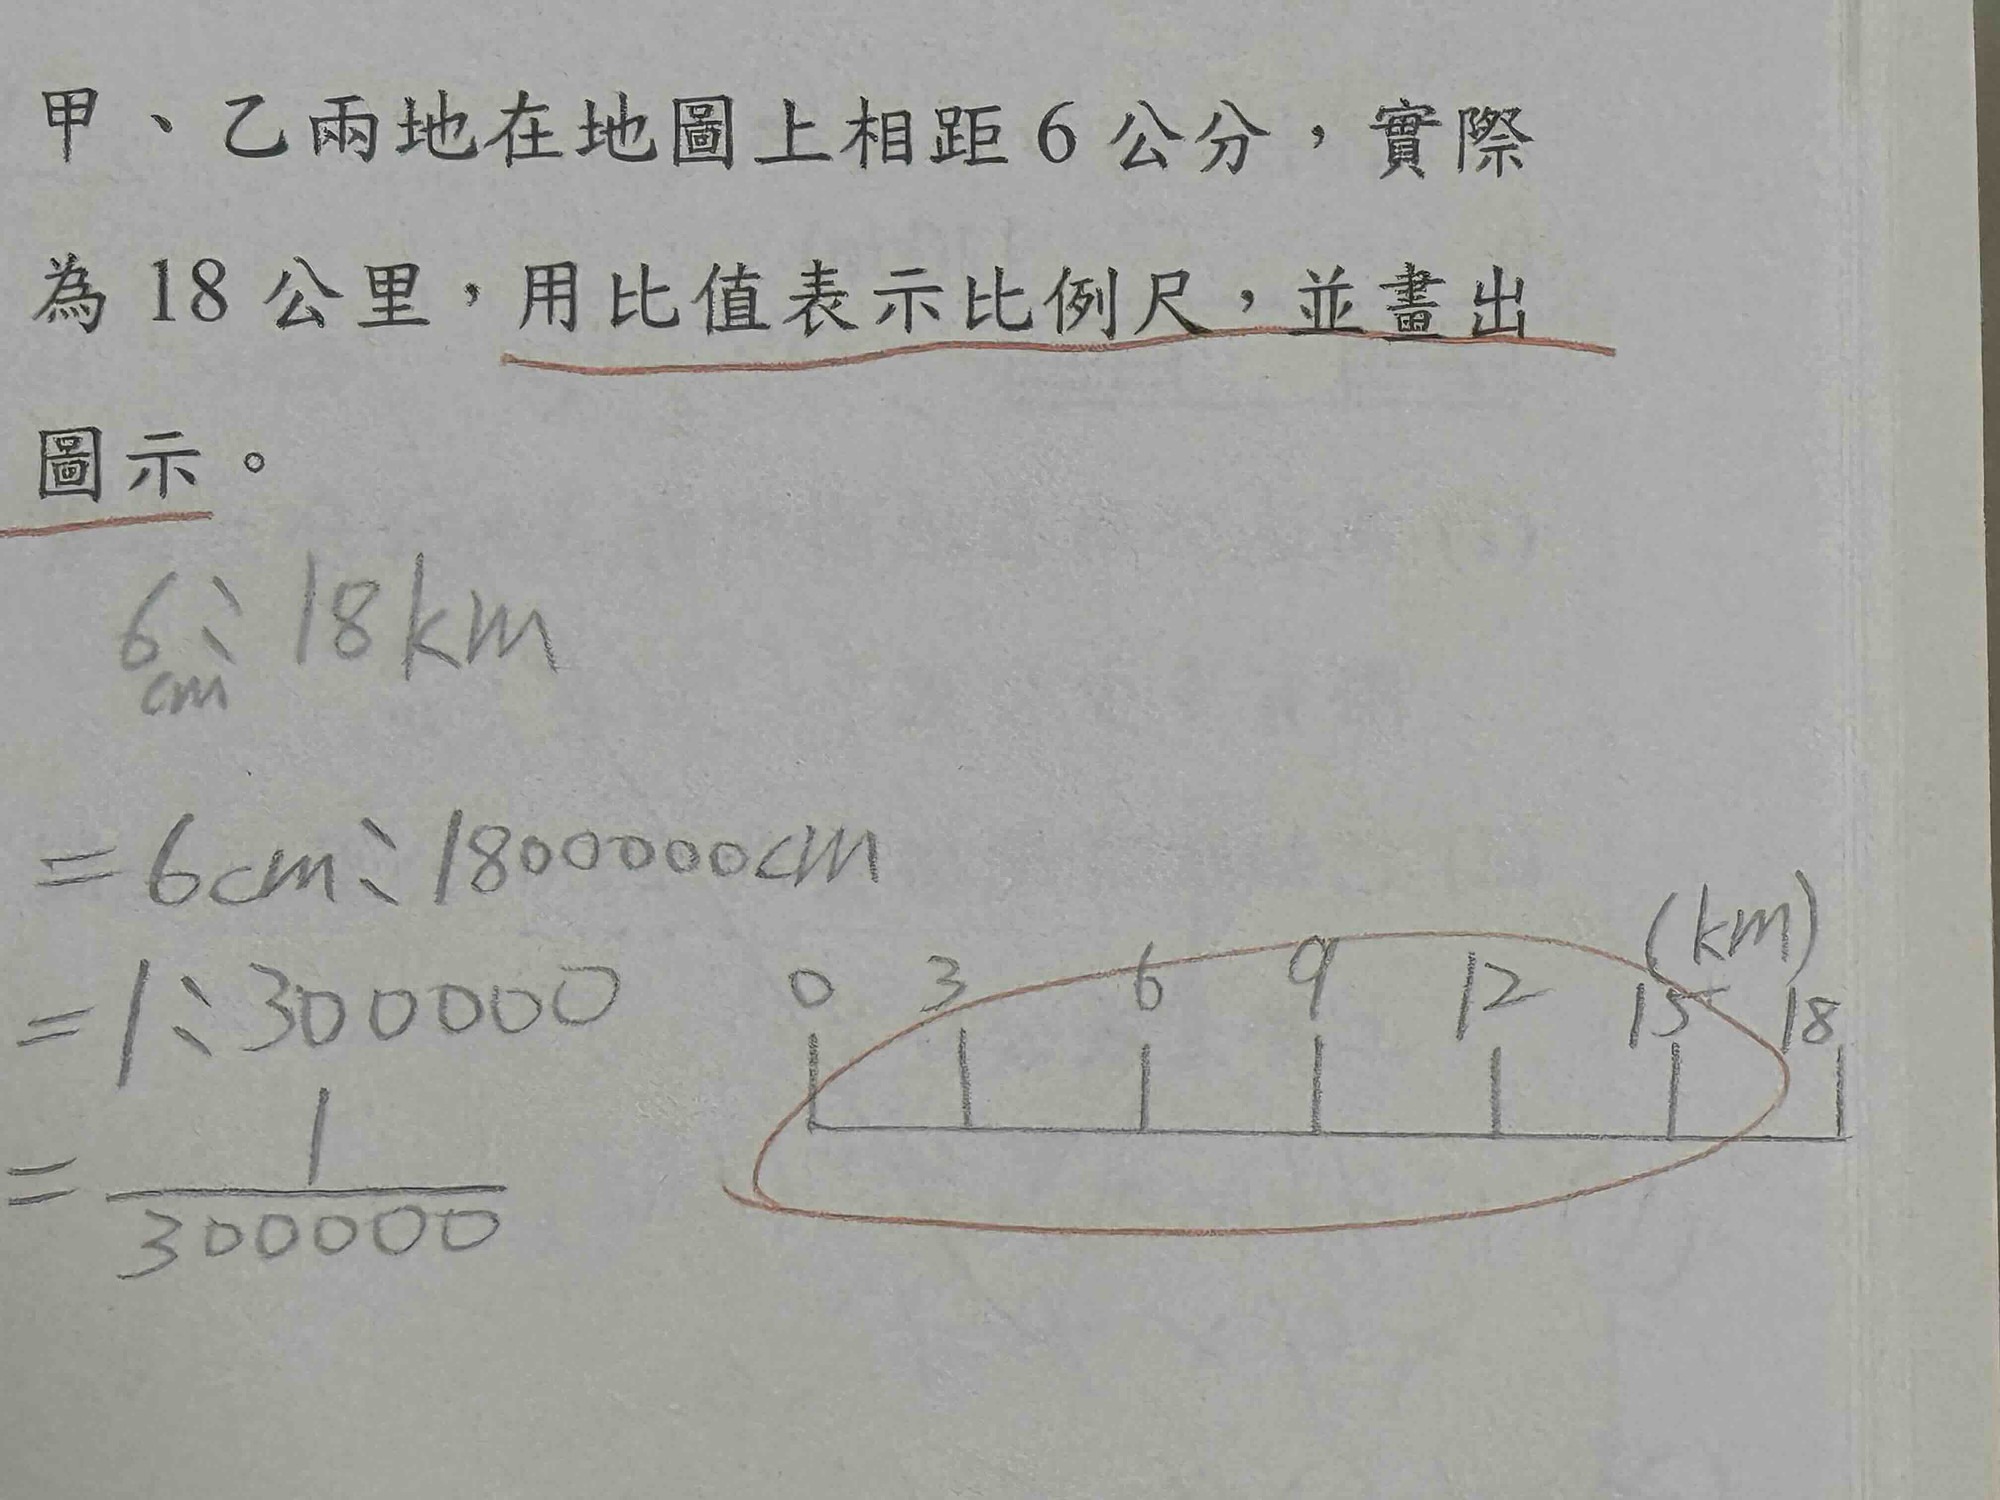 甲、乙兩地在地圖上相距6公分，實際
為18公里，用比值表示比例尺，並畫出
圖示。
6cm:18km
=6cm:1800000cm
=1:300000
=1/300000
(km)
0 3 6 9 12 15 18